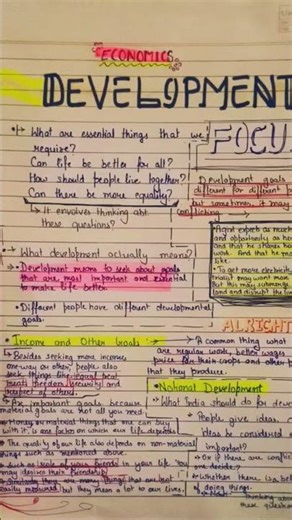 ECONOMICS
DEVELOPMENT
What are essential things that we
require?
Can life be better for all?
How should people live together?
Can there be more equality?
It envolves thinking abt
these questions?
What development actually means?
Development means to
goals
that are most important and essential
to make life better.
Different people have different developmental
goals.
Income and Other Goals :
Besides seeking more income
one way or other, people also
seek things like equal
treats freedom, security and
respect of others.
important goals because
material goals are not all you need.
Money or material things that one can buy
with it, is one factor on which our life depends.
The quality of our life also depends on non-material
things such as mentioned above.
role of your friends in your life You
desires their friendship.
Similarly there are many things that are not
easily measured but they mean a lot to our lives.
FOCU
Development goals
different for different p
but sometimes, it may
conflicting
and opportunity as he
and that he should
work. And that he
like.
To get more electricity,
may want more
But this may submerge
land and disrupt the
ALRIGHT
A common thing what
are regular work, better wages
price for their crops and other p
that they produce.
National Development
What India should do for deve
People give ideas.
ideas be considered
important?
Or if there are conflic
one decide?
Whether there is a bet
of doing things.
thinking about
these question